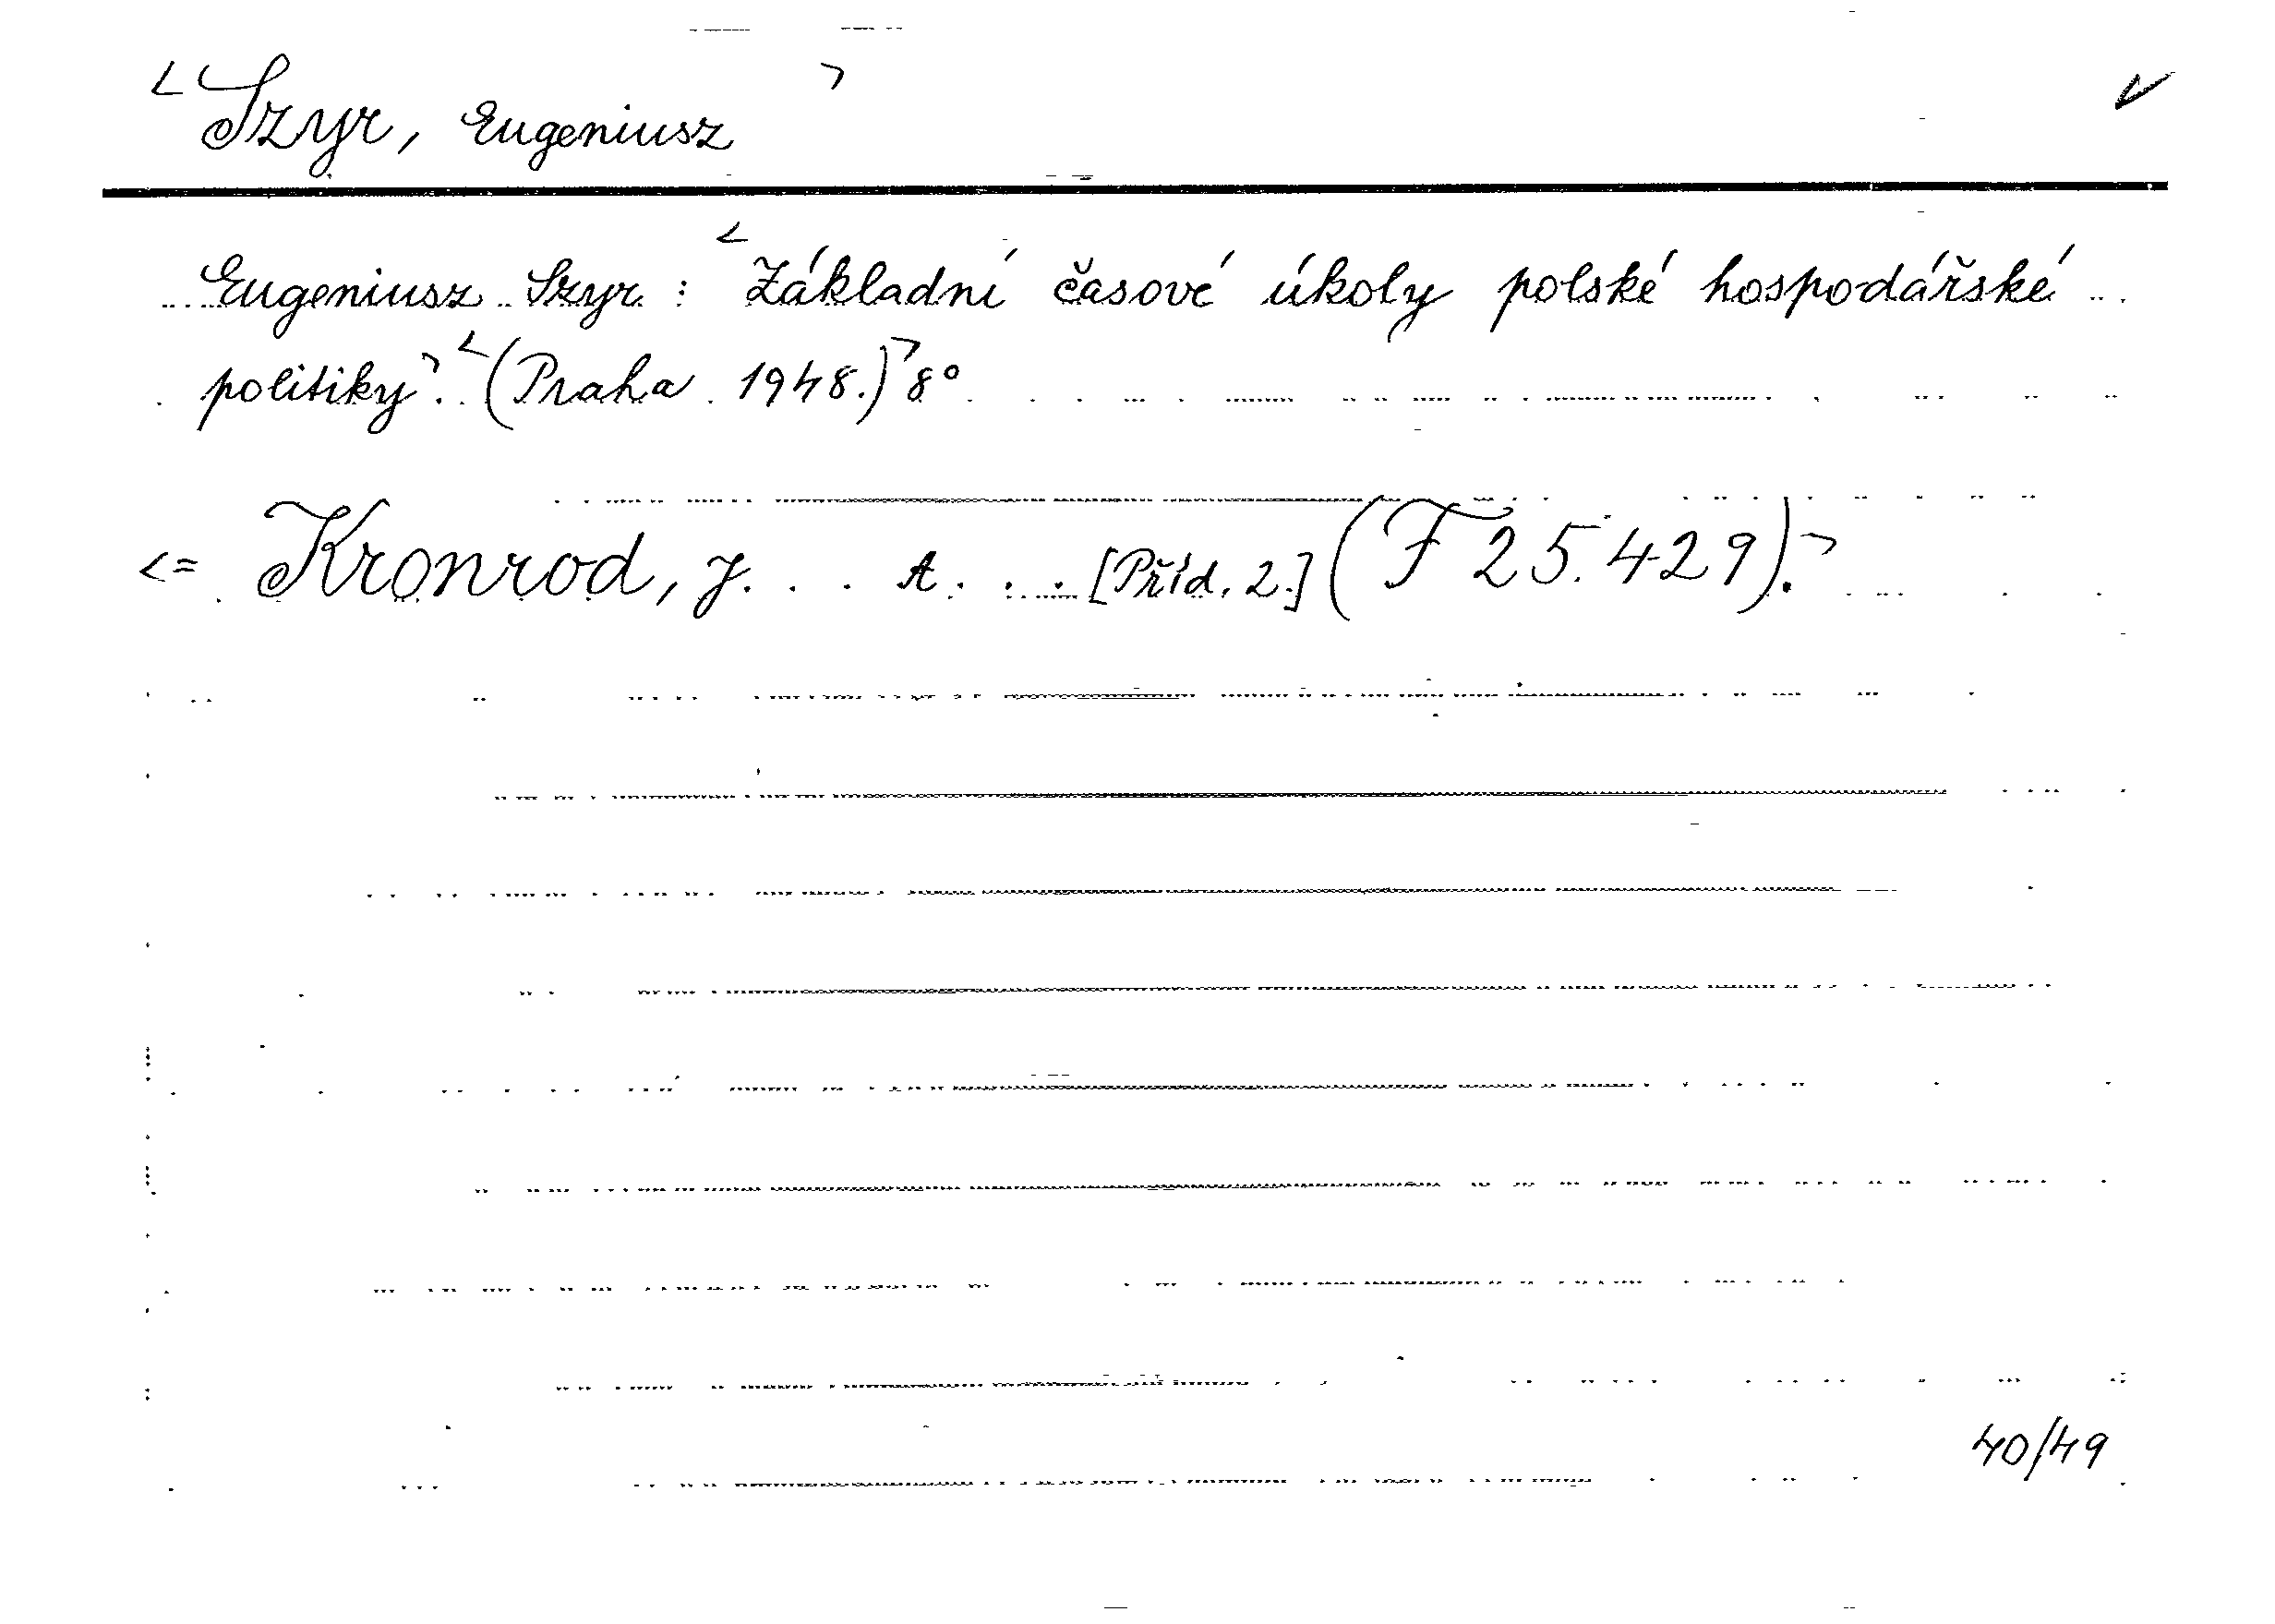 <Szyr, Eugeniusz>
Eugeniusz Szyr: <Základní časové úkoly polské hospodářské
politiky.> <(Praha 1948.)> 8°
<= Kronrod, J. . . A. . . [Příd. 2.] (F 25.429).>
40/49